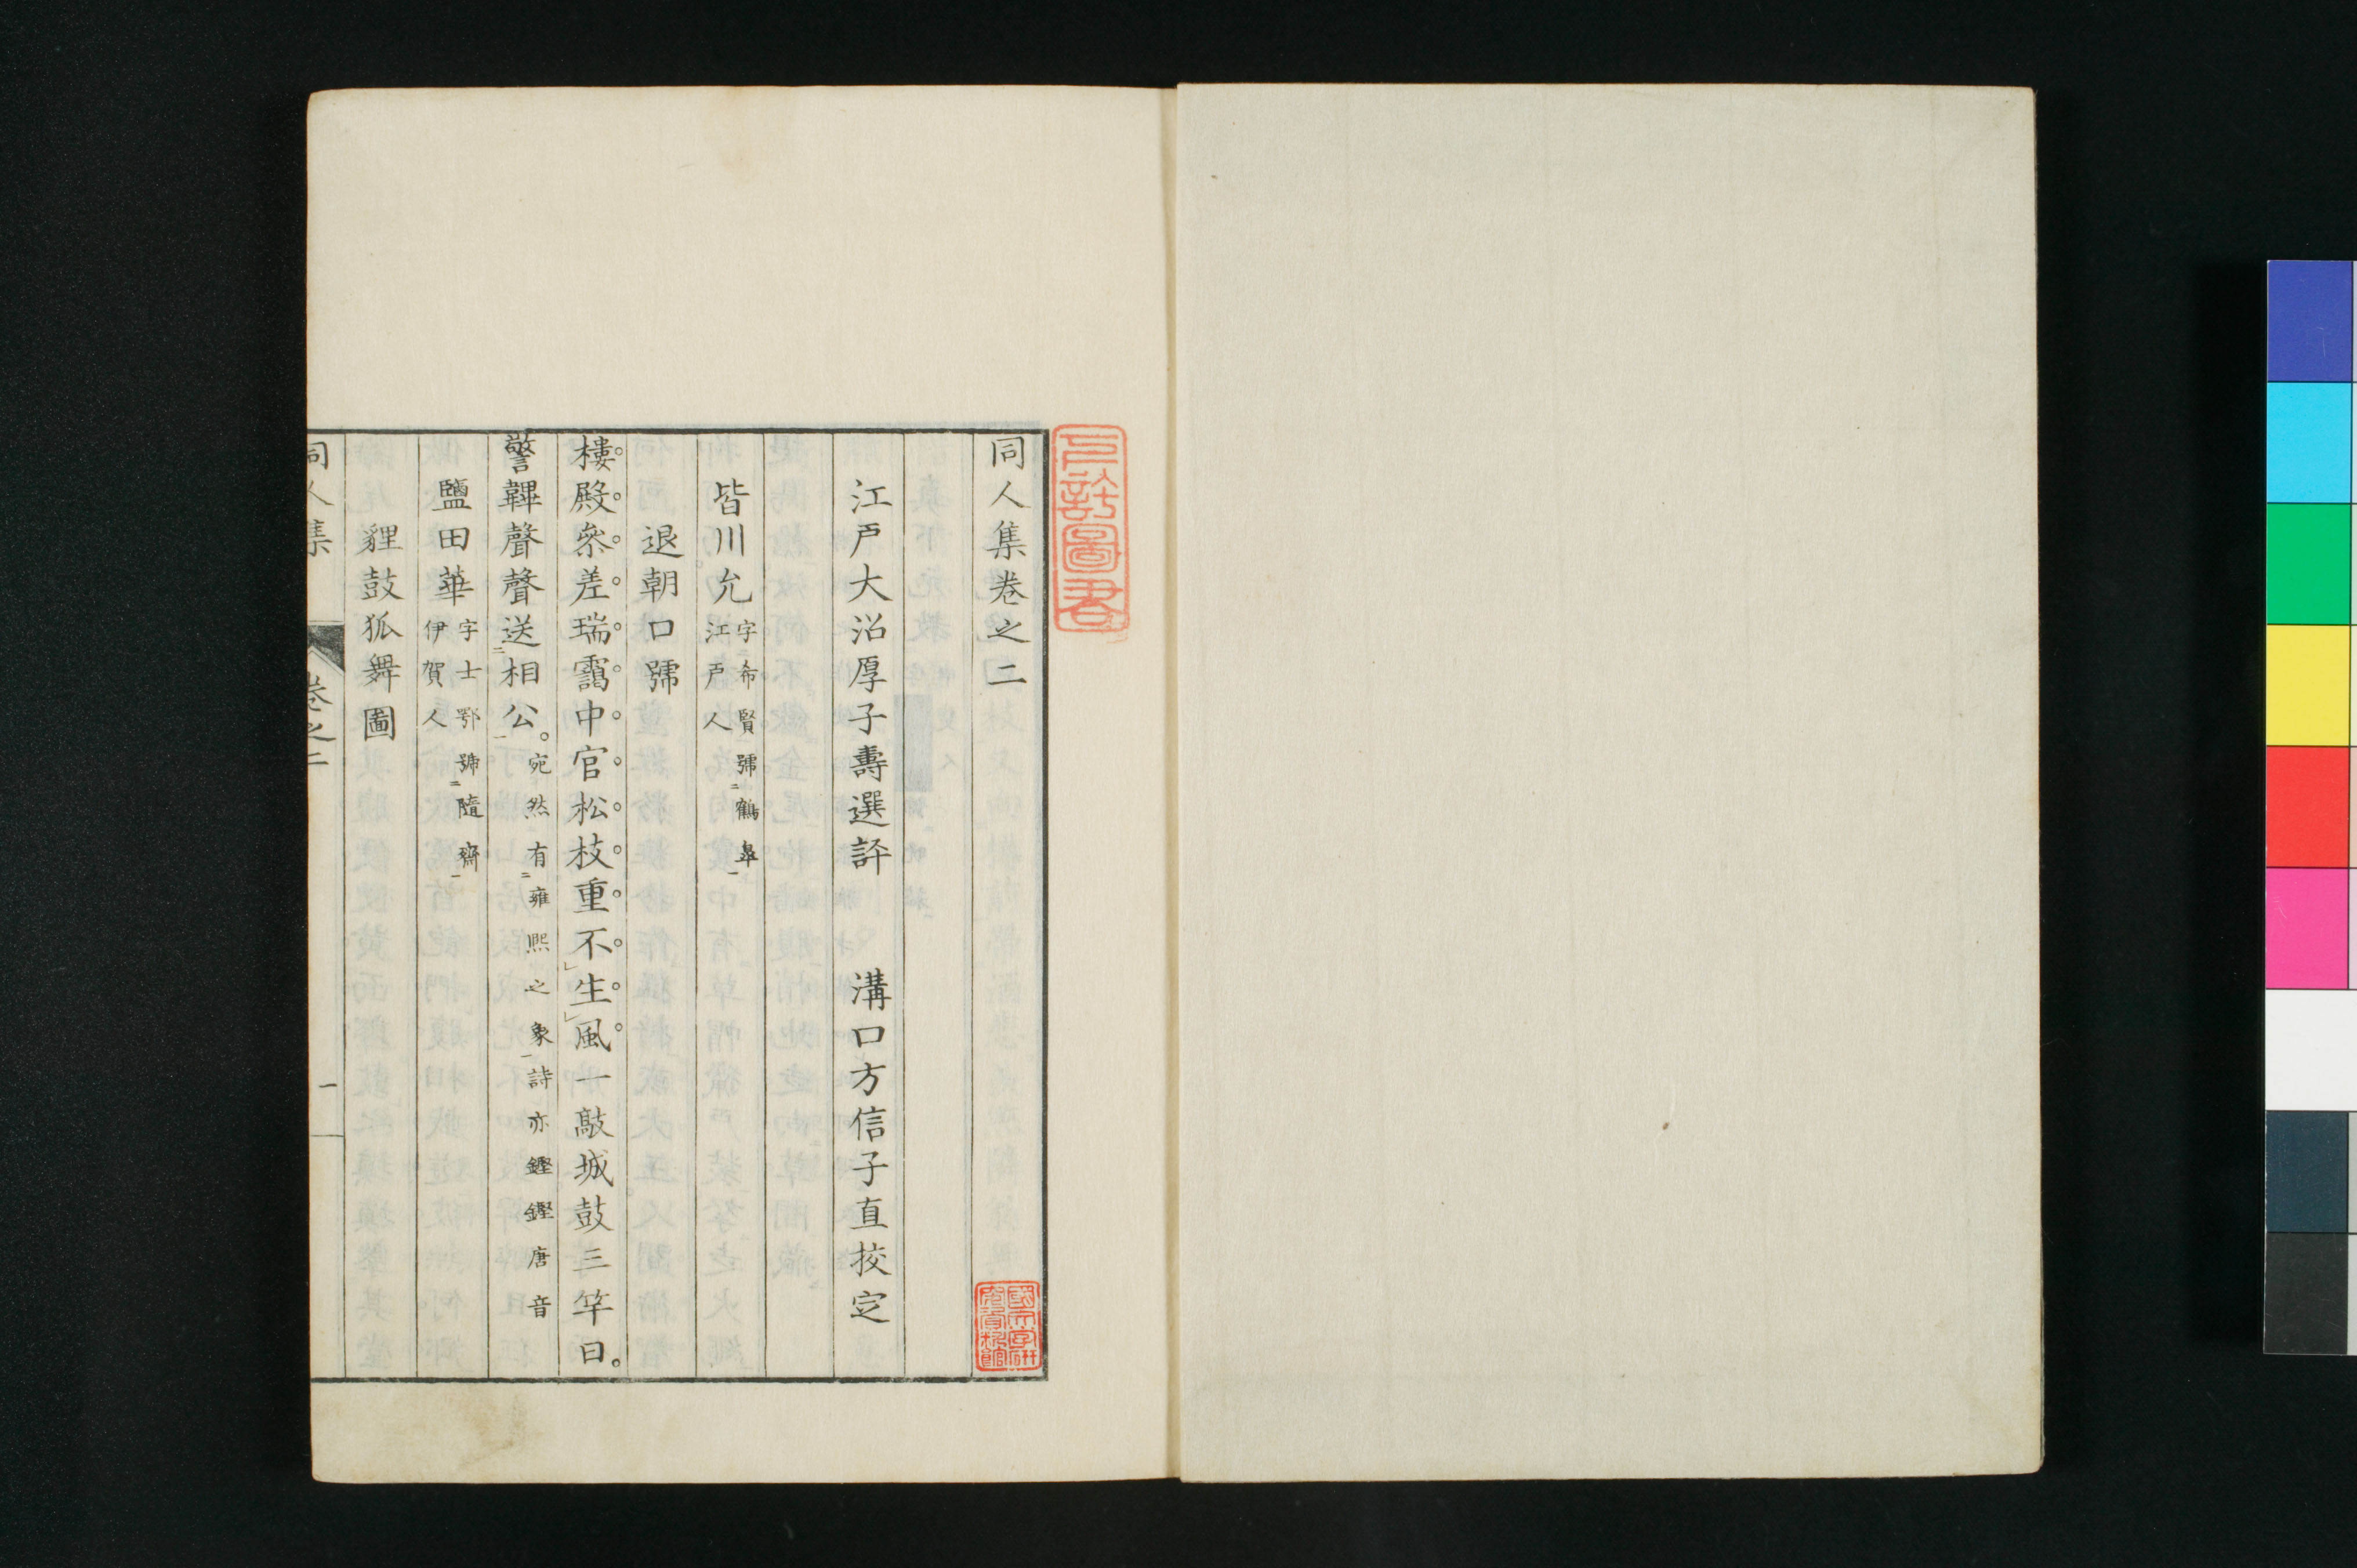 同人集卷之二
江戸大沼厚子壽選評　溝口方信子直挍定
皆川允 字希賢號二鶴皐一
江戸人
退朝口號
樓殿參差瑞靄中官松枝重不生風一敲城鼓三竿日
警鞸聲聲送相公 宛然有二雍熙之象一詩亦鏗鏗唐音
鹽田華 字士鄂號二隨齋一
伊賀人
貍鼓狐舞圖
同人集 卷之二 一